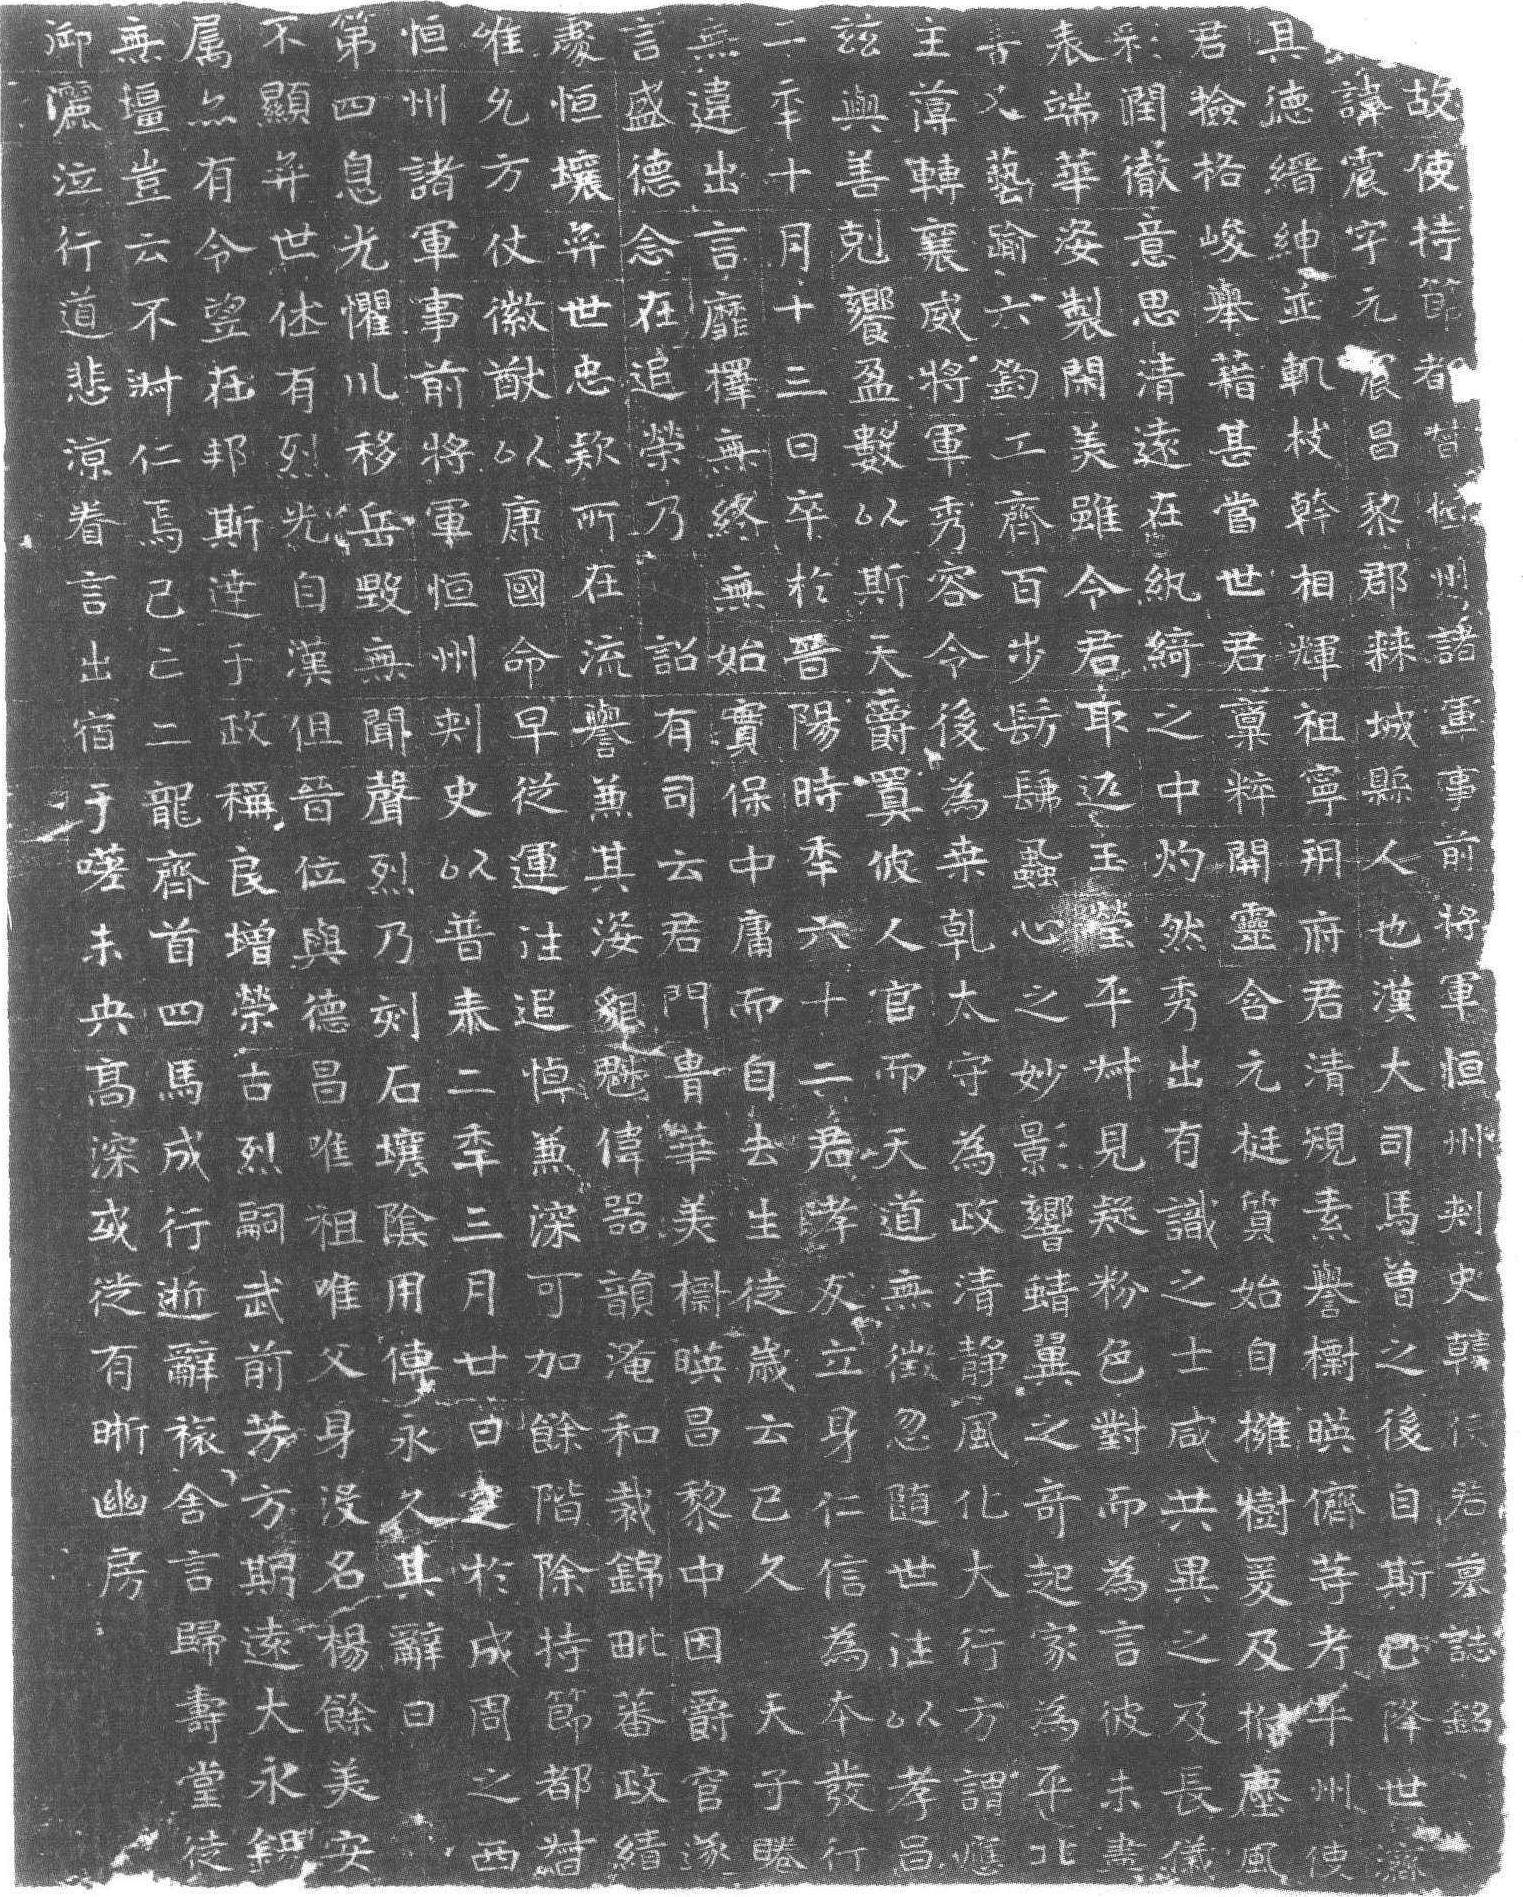 故使持節都督恒州諸軍事前將軍恒州刾史韓使君墓誌銘
諱震字元震昌黎郡棘城縣人也漢大司馬曾之後自斯已降世濟
其德縉紳並軌枝幹相輝祖寧朔府君清規素譽㯋暎儕等考平州使
君撿格峻舉藉甚當世君稟粹開靈含元挺質始自擁樹爰及摐塵風
彩潤徹意思清遠在紈綺之中灼然秀出有識之士咸共異之及長儀
表端華姿製閑美雖令君耴返玉瑩平叔見疑粉色對而為言彼未盡
善文藝踰六鈞工齊百步髣髴蟁心之妙影響蜻翼之奇起家為平北
主薄轉襄威將軍秀容令後為桒乹太守為政清静風化大行方謂應
茲與善剋饗盈數以斯天爵寘彼人官而天道無徵忽随世往以孝昌
二年十月十三日卒於晉陽時年六十二君孝友立身仁信為本發行
無違出言靡擇無終無始實保中庸而自去生徒歲云已久 天子睠
言盛德念在追榮乃 詔有司云君門胄華美㯋暎昌黎中因爵官遂
處恒壤弈世忠款所在流譽兼其姿貌魁偉器韻淹和裁錦毗蕃政績
維允方仗徽猷以康國命早從運往追悼兼深可加餘階除持節都督
恒州諸軍事前將軍恒州刾史以普泰二年三月廿日窆於成周之西
第四息光懼川移岳毀無聞聲烈乃刻石壤陰用傳永久其辭曰
丕顯弈世休有烈光自漢但晉位與德昌唯祖唯父身没名楊餘美安
属亦有令望在邦斯達于政稱良增榮古烈嗣武前芳方期遠大永錫
無壃豈云不淋仁焉已亡二龍齊首四馬成行逝辭祿舍言歸壽堂徒
御灑泣行道悲涼眷言出宿于嗟未央高深或徙有晰幽房